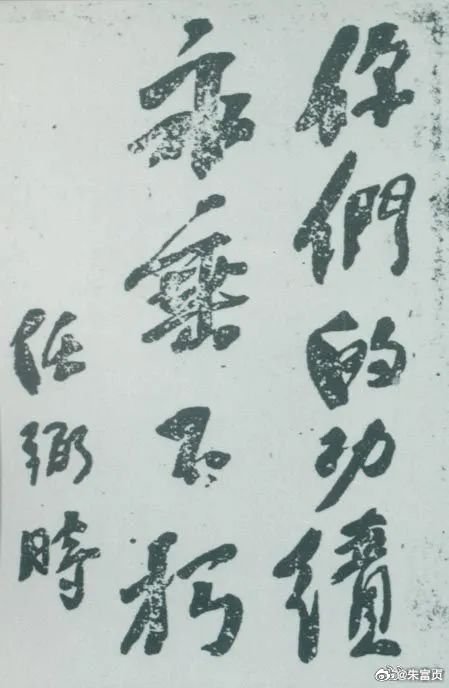 你們的功績
永垂不朽
任弼時
@朱富贞